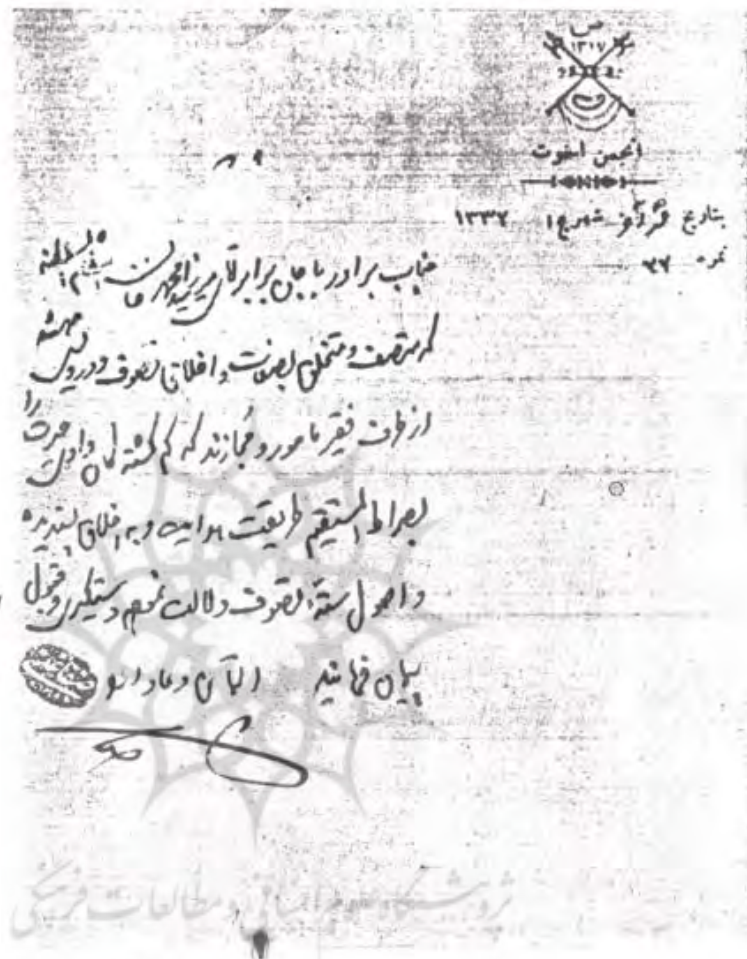 ص
۱۳۱۷
انجمن اخوت
بتاریخ شهر ۱۳۳۷
نمره ۲۷
جناب برادر با جان برابر آقای میرزا خان
که متصف و متخلق بصفات و اخلاق تصوف و درویشی
از طرف فقیر مأمور و مجازند که گم گشته گان وادی حیرت را
بصراط المستقیم طریقت هدایت و به اخلاق پسندیده
و اصول ستهٔ تصوف دلالت نموده دستگیری و قبول
پیمان فرمایند
پژوهشگاه علوم انسانی و مطالعات فرهنگی